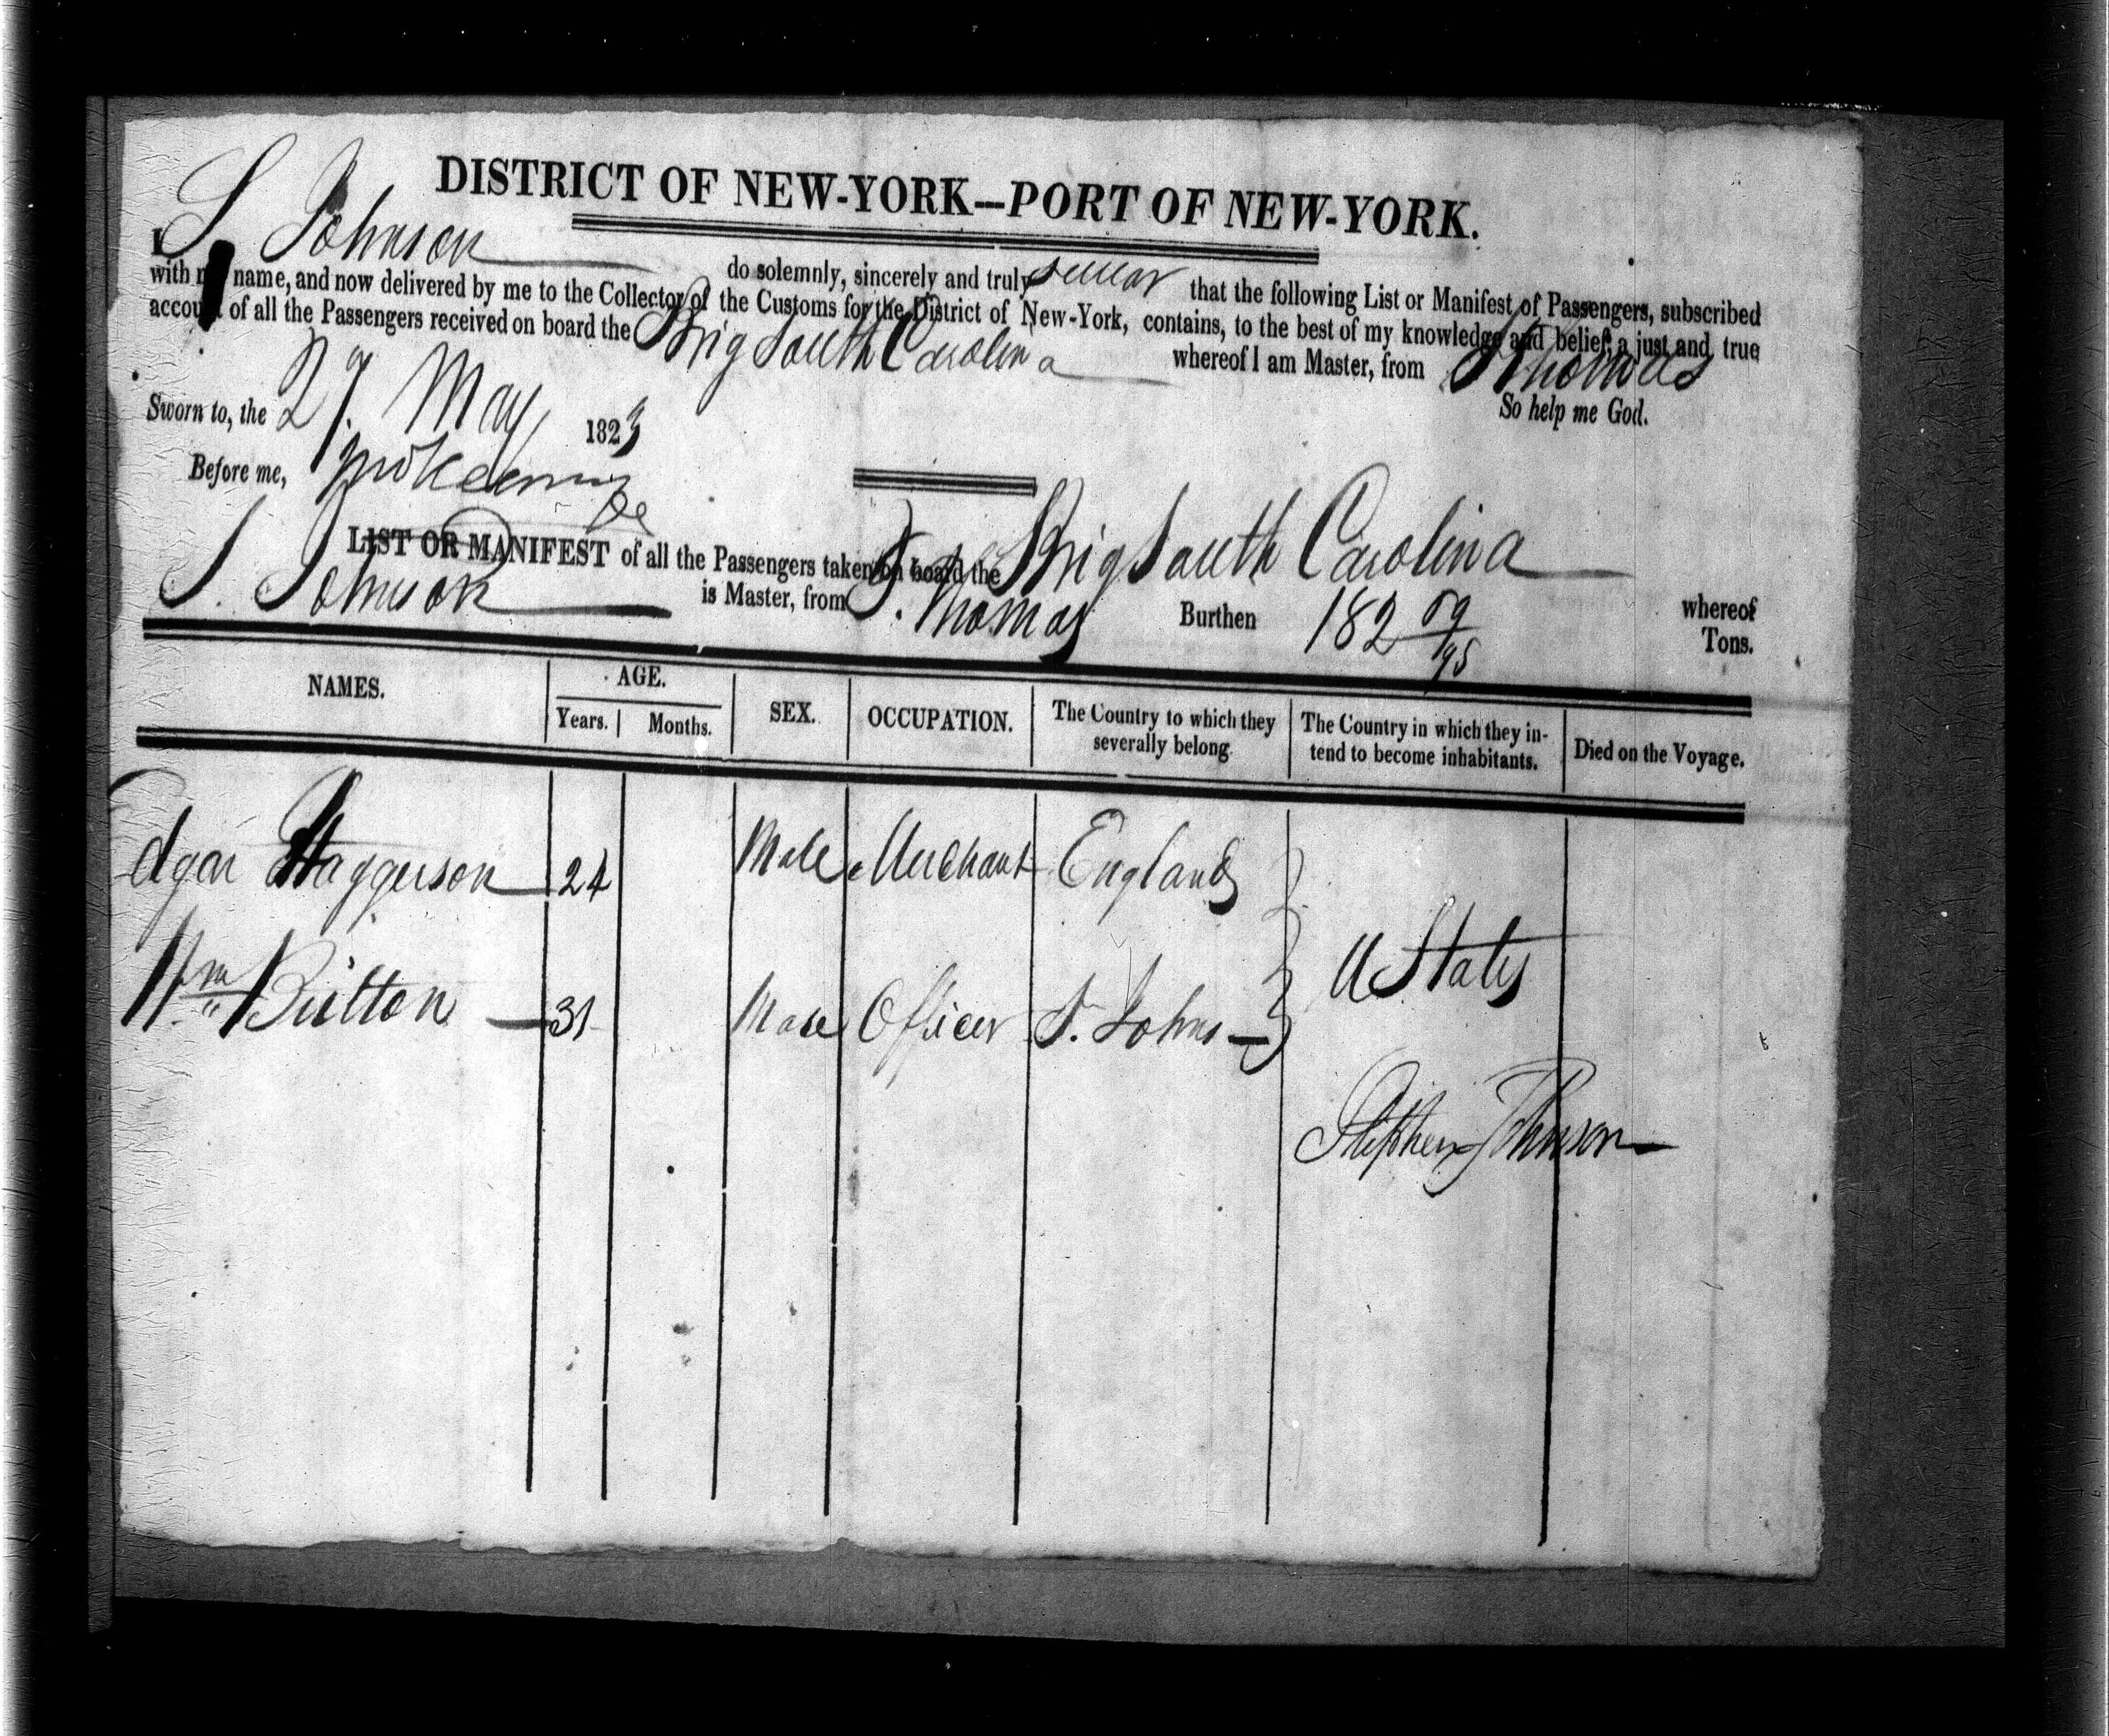 DISTRICT OF NEW-YORK—PORT OF NEW-YORK.
I S Johnson do solemnly, sincerely and truly swear that the following List or Manifest of Passengers, subscribed
with my name, and now delivered by me to the Collector of the Customs for the District of New-York, contains, to the best of my knowledge and belief, a just and true
account of all the Passengers received on board the Brig South Carolina whereof I am Master, from St Thomas
So help me God.
Sworn to, the 27 May 182
Before me,
LIST OR MANIFEST of all the Passengers taken on board the Brig South Carolina whereof
S. Johnson is Master, from St. Thomas Burthen 182 59/95 Tons.
NAMES. AGE. SEX. OCCUPATION. The Country to which they severally belong. The Country in which they intend to become inhabitants. Died on the Voyage.
Years. Months.
Edgar Haggerson 24 Male Merchant England
U States
Wm Button 31 Male Officer St. Johns
Stephen Johnson